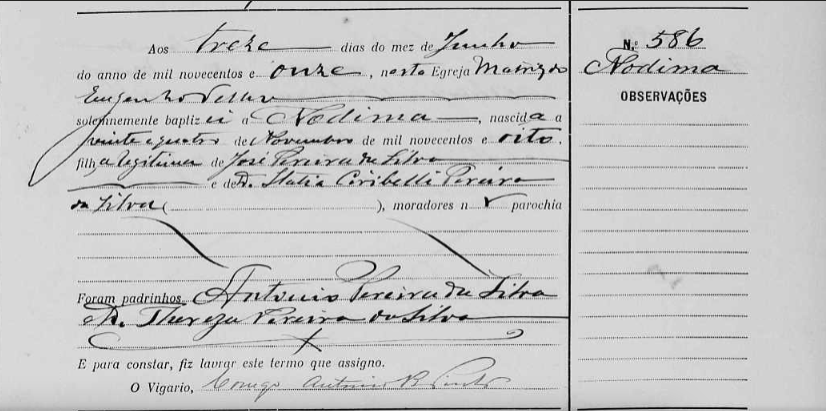 Aos treze dias do mez de Junho
do anno de mil novecentos e onze, nesta Egreja Matriz do
Engenho Velho
solemnemente baptizei a Nodima, nascida a
vinte e quatro de Novembro de mil novecentos e oito,
filha legitima de José Pereira da Silva
e de D. Italia Ceribelli Pereira
da Silva ( ), moradores n parochia
Foram padrinhos Antonio Pereira da Silva
D. Thereza Pereira da Silva
E para constar, fiz lavrar este termo que assigno.
O Vigario, Conego Antonio B. Pinto
N. 586
Nodima
OBSERVAÇÕES